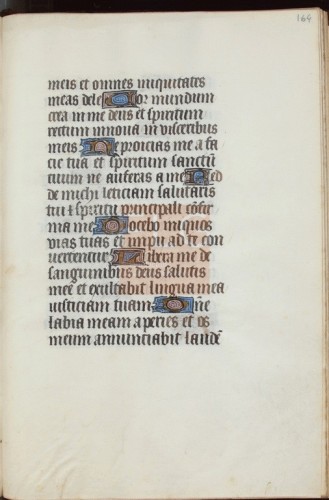 169
meis et omnes iniquitates
meas dele Cor mundum
crea in me deus et spiritum
rectum innova in visceribus
meis Ne proicias me a fa
cie tua et spiritum sanctū
tuum ne auferas a me Red
de michi leticiam salutaris
tui & spiritu principali cōfir
ma me Docebo iniquos
vias tuas et impii ad te con
vertentur Libera me de
sanguinibus deus deus salutis
mee et exultabit lingua mea
iusticiam tuam Dn̄e
labia mea aperies et os
meum annunciabit laudē